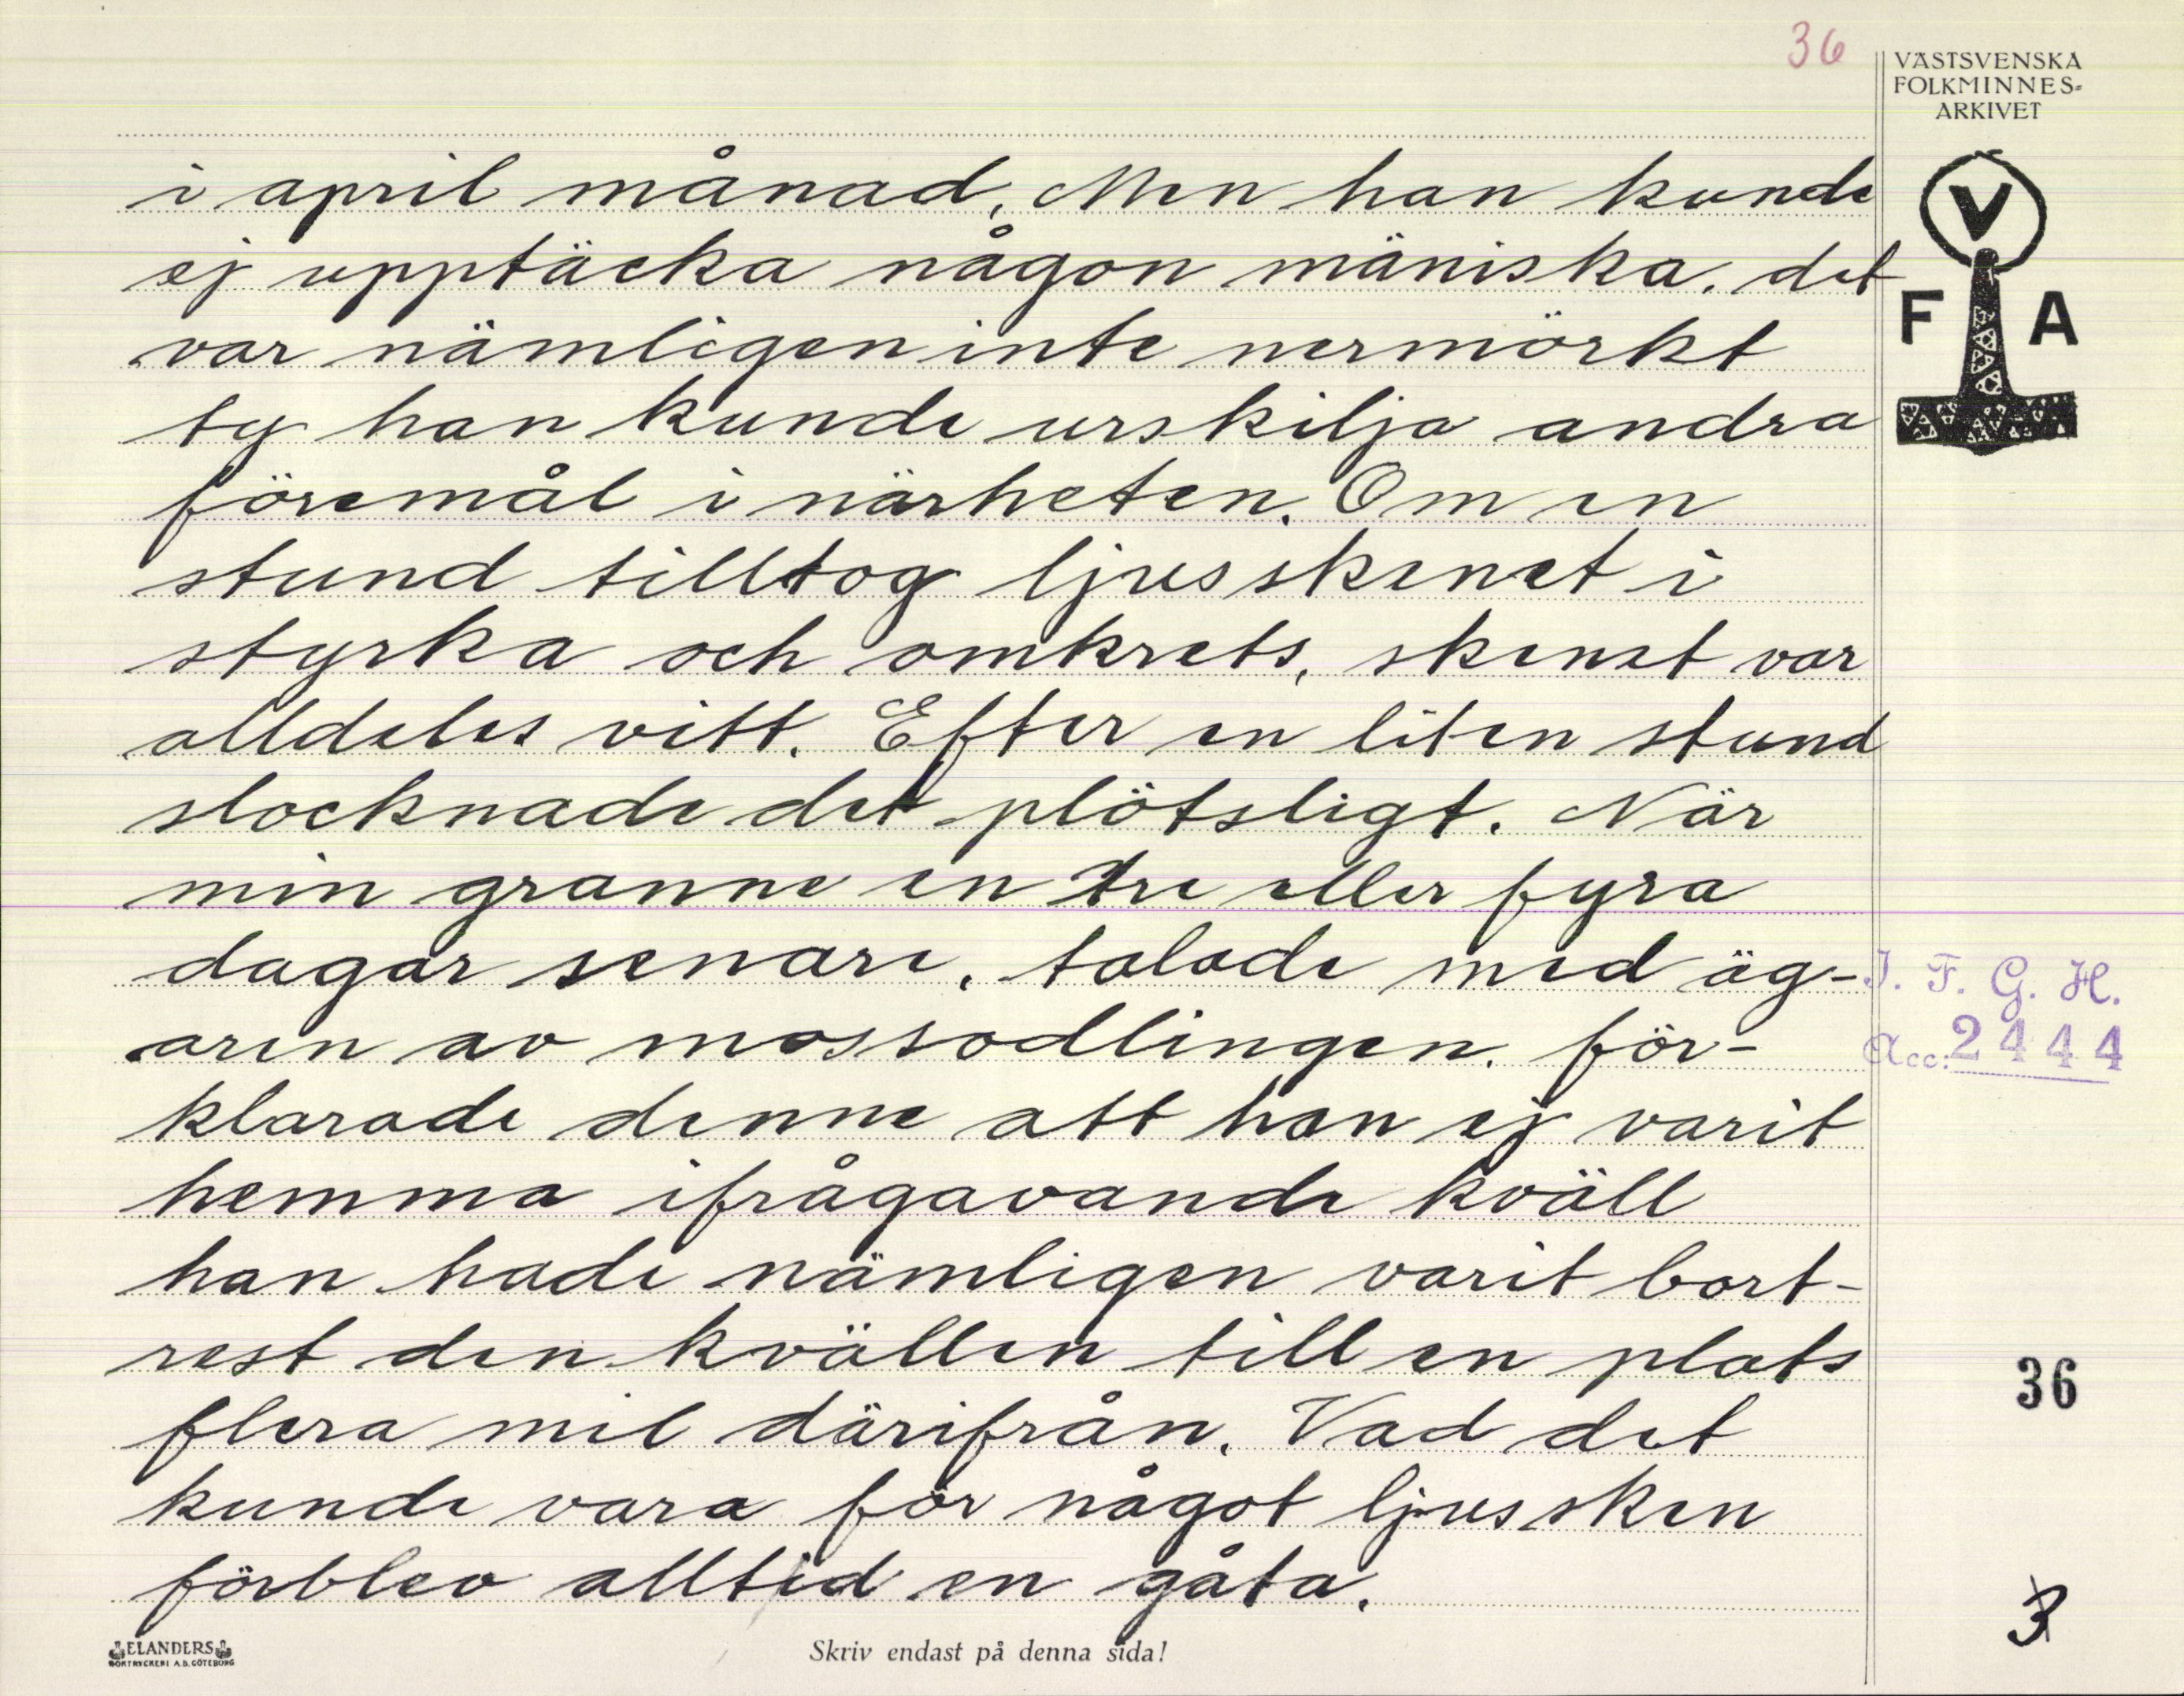 36
VÄSTSVENSKA
FOLKMINNES-
ARKIVET
V
F A
i april månad, Men han kunde
ej upptäcka någon mäniska. det
var nämligen inte nermörkt
ty han kunde urskilja andra
föremål i närheten. Om en
stund tilltog ljusskenet i
styrka och omkrets, skenet var
alldeles vitt. Efter en liten stund
slocknade det plötsligt. När
min granne en tre eller fyra
dagar senare, talade med äg-
aren av mossodlingen. för-
klarade denne att han ej varit
hemma ifrågavande kväll
han hade nämligen varit bort-
rest den kvällen till en plats
flera mil därifrån. Vad det
kunde vara för något ljussken
förblev alltid en gåta.
I. F. G. H.
Acc: 2444
36
3
ELANDERS
BOKTRYCKERI A.B. GÖTEBORG
Skriv endast på denna sida!